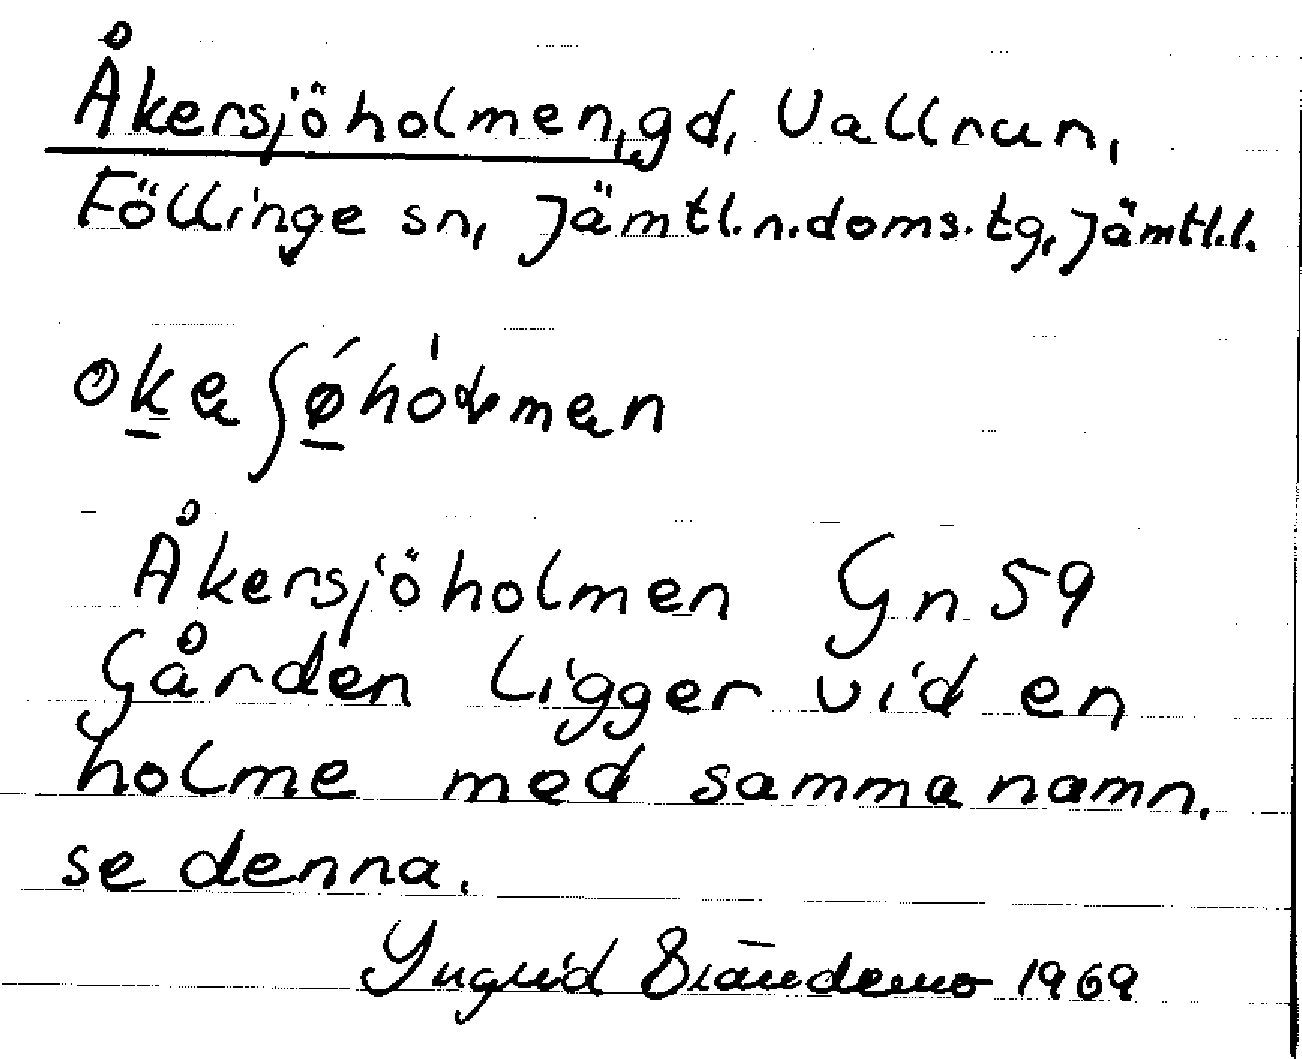 Åkersjöholmen, gd, Vallrun,
Föllinge sn, Jämtl.n.doms.tg, Jämtl.l.
Åkersjöholmen Gn 59
Gården ligger vid en
holme med samma namn.
se denna.
Ingrid 1969